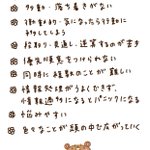 多動・落ち着きがない
衝動的・気になったら行動に
移してしまう
段取り・見通し・逆算するのが苦手
優先順位をつけられない
同時に複数のことが難しい
情報処理がうまくいかず、
情報過多になるとパニックになる
悩みやすい
色々なことが頭の中で広がっていく